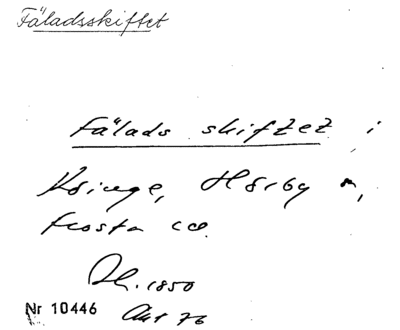 Fäladsskiftet
Fälads skiftet i
Kringe, Hörby sn,
Frosta hd.
Dl. 1850
Nr 10446 Akt 76